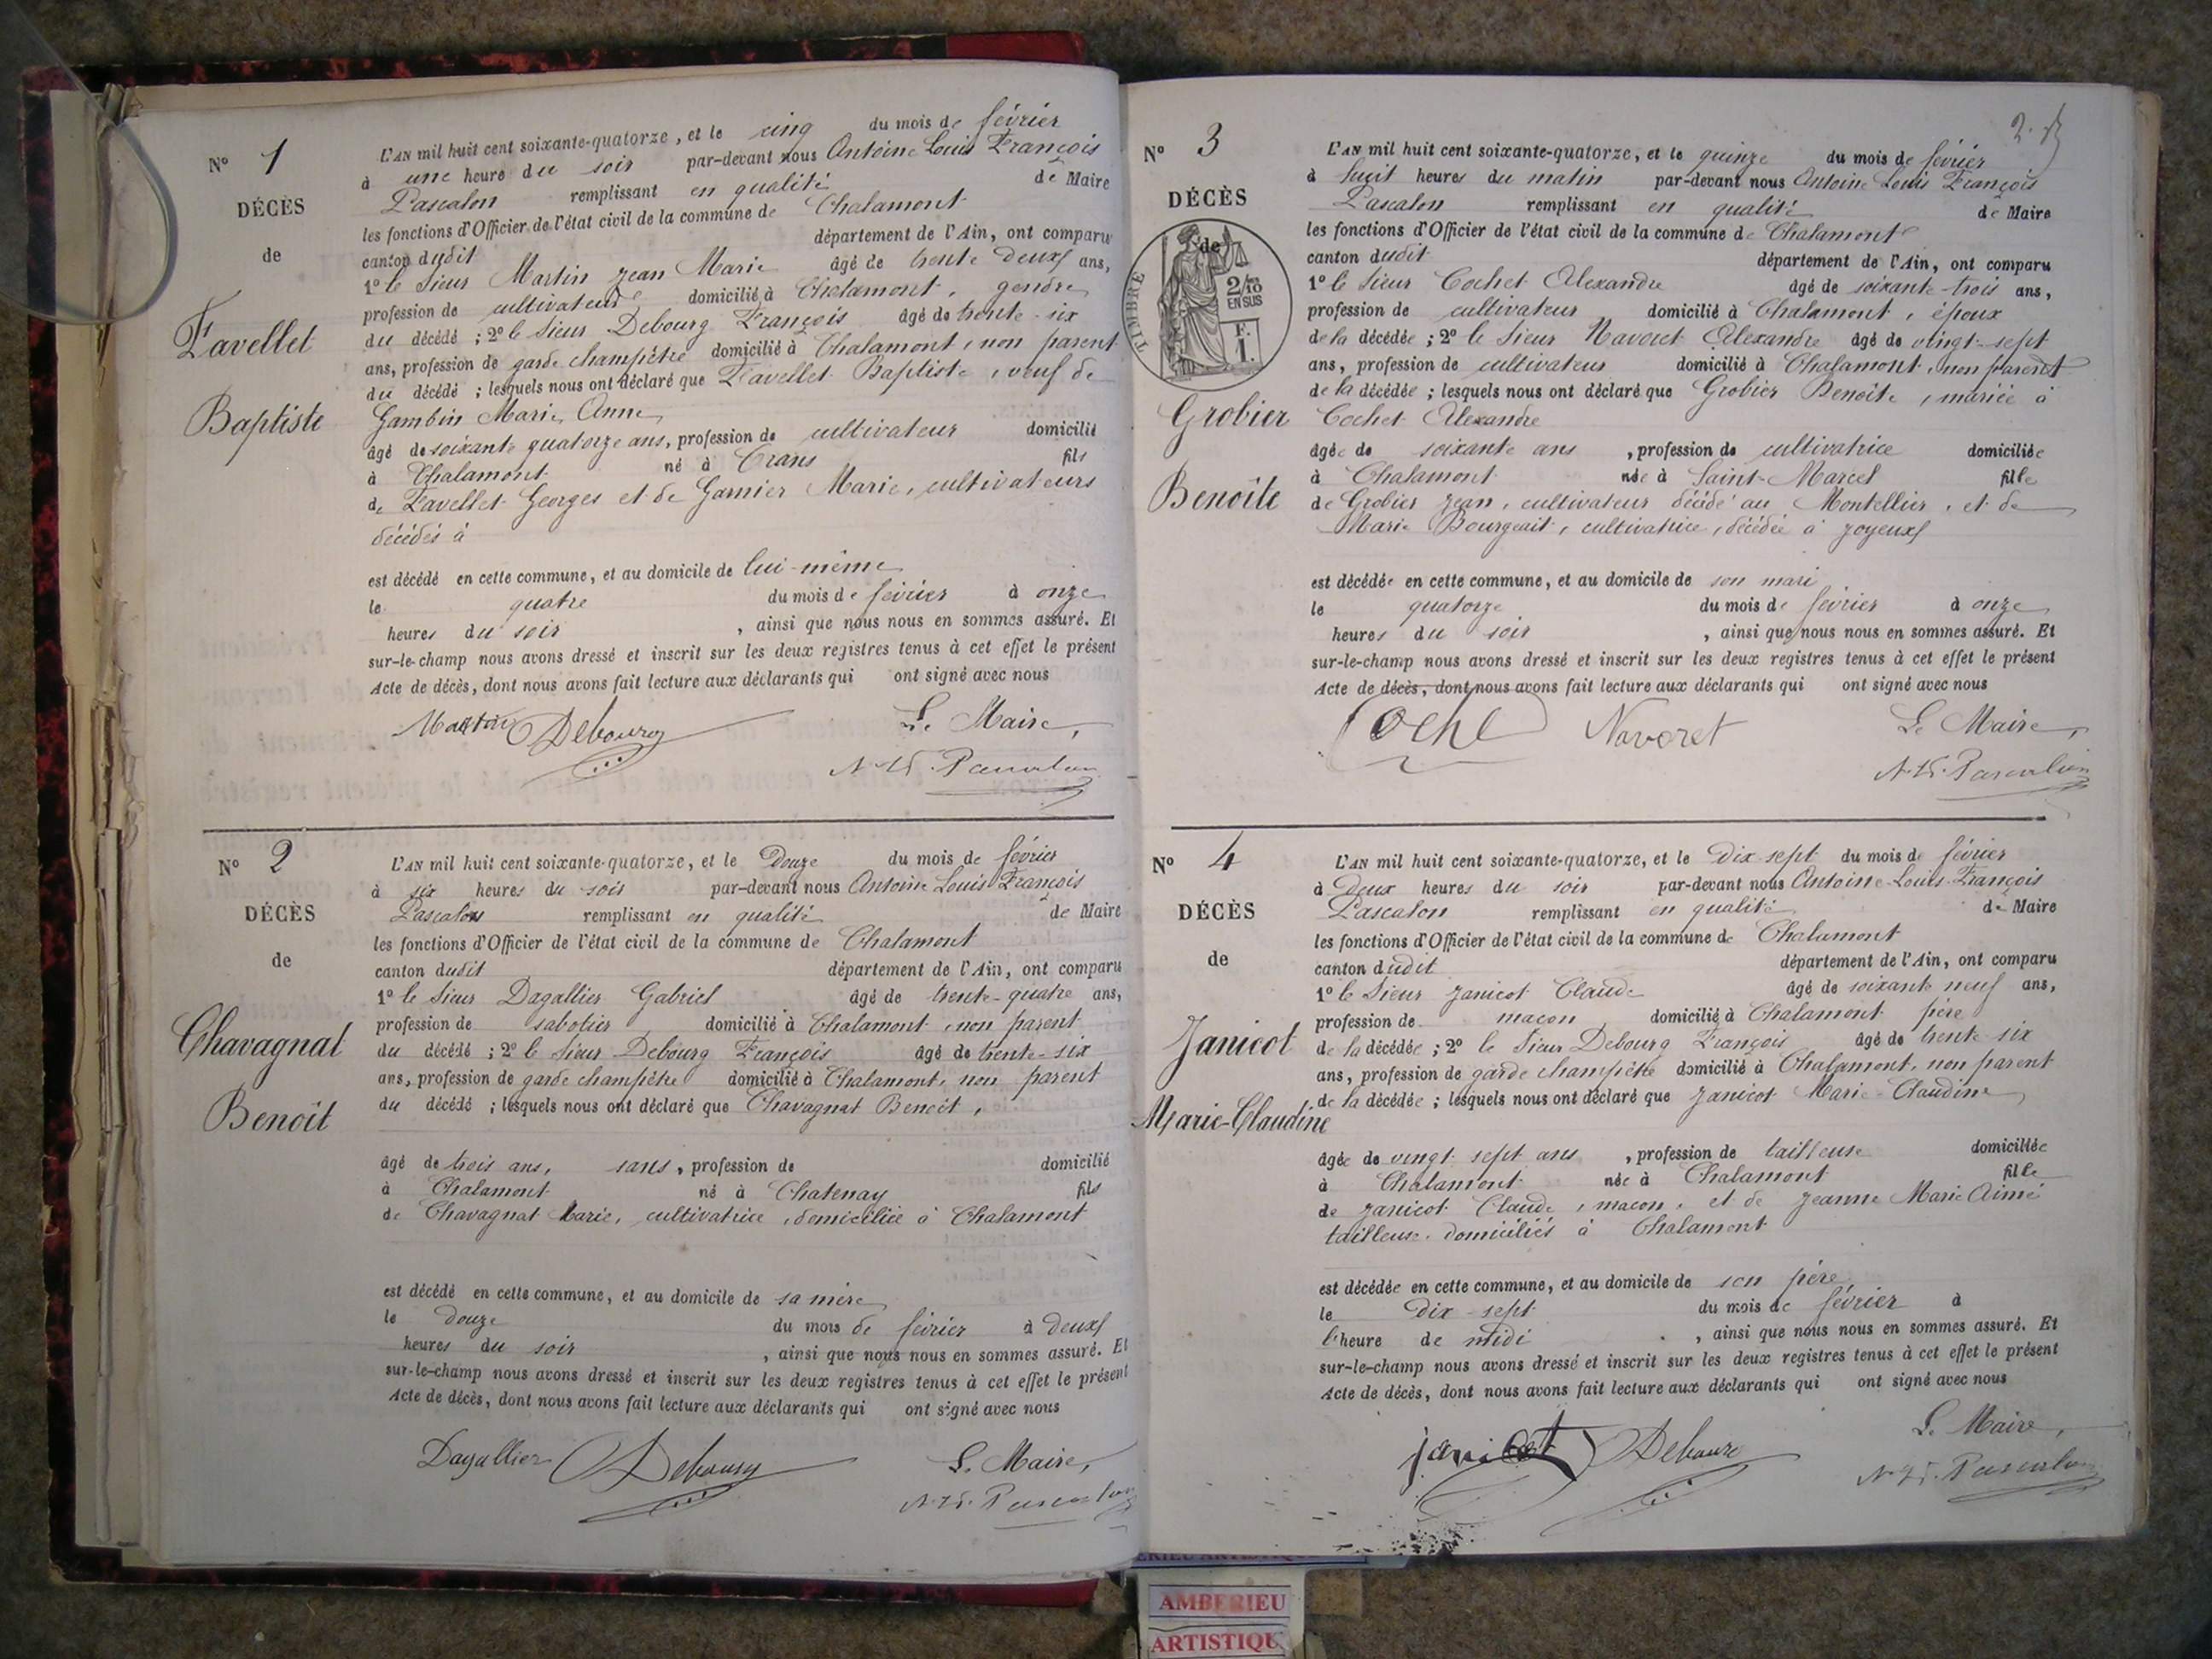 N° 1
DÉCÈS
de
Favellet
Baptiste
L'AN mil huit cent soixante-quatorze, et le cinq du mois de février
à une heure du soir par-devant nous Antoine Louis François
Pascalon remplissant en qualité de Maire
les fonctions d'Officier de l'état civil de la commune de Chalamont
canton dudit département de l'Ain, ont comparu
1° le Sieur Martin Jean Marie âgé de trente deux ans,
profession de cultivateur domicilié à Chalamont, gendre
du décédé ; 2° le Sieur Debourg François âgé de trente-six
ans, profession de garde champêtre domicilié à Chalamont, non parent
du décédé ; lesquels nous ont déclaré que Favellet Baptiste, veuf de
Gambin Marie Anne
âgé de soixante quatorze ans, profession de cultivateur domicilié
à Chalamont né à Crans fils
de Favellet Georges et de Garnier Marie, cultivateurs
décédés à
est décédé en cette commune, et au domicile de lui-même
le quatre du mois de février à onze
heures du soir , ainsi que nous nous en sommes assuré. Et
sur-le-champ nous avons dressé et inscrit sur les deux registres tenus à cet effet le présent
Acte de décès, dont nous avons fait lecture aux déclarants qui ont signé avec nous
Martin Debourg Le Maire,
Pascalon
N° 2
DÉCÈS
de
Chavagnat
Benoît
L'AN mil huit cent soixante-quatorze, et le Douze du mois de février
à six heures du soir par-devant nous Antoine Louis François
Pascalon remplissant en qualité de Maire
les fonctions d'Officier de l'état civil de la commune de Chalamont
canton dudit département de l'Ain, ont comparu
1° le Sieur Dagallier Gabriel âgé de trente-quatre ans,
profession de sabotier domicilié à Chalamont, non parent
du décédé ; 2° le Sieur Debourg François âgé de trente-six
ans, profession de garde champêtre domicilié à Chalamont, non parent
du décédé ; lesquels nous ont déclaré que Chavagnat Benoît,
âgé de trois ans, sans, profession de domicilié
à Chalamont né à Chatenay fils
de Chavagnat Marie, cultivatrice, domiciliée à Chalamont
est décédé en cette commune, et au domicile de sa mère
le douze du mois de février à deux
heures du soir , ainsi que nous nous en sommes assuré. Et
sur-le-champ nous avons dressé et inscrit sur les deux registres tenus à cet effet le présent
Acte de décès, dont nous avons fait lecture aux déclarants qui ont signé avec nous
Dagallier Debourg Le Maire,
Pascalon
2.
N° 3
DÉCÈS
de
TIMBRE
2/10
EN SUS
F.
1.
Grobier
Benoîte
L'AN mil huit cent soixante-quatorze, et le quinze du mois de février
à huit heures du matin par-devant nous Antoine Louis François
Pascalon remplissant en qualité de Maire
les fonctions d'Officier de l'état civil de la commune de Chalamont
canton dudit département de l'Ain, ont comparu
1° le Sieur Cochet Alexandre âgé de soixante-trois ans,
profession de cultivateur domicilié à Chalamont, époux
de la décédée ; 2° le Sieur Navoret Alexandre âgé de vingt-sept
ans, profession de cultivateur domicilié à Chalamont, non parent
de la décédée ; lesquels nous ont déclaré que Grobier Benoîte, mariée à
Cochet Alexandre
âgée de soixante ans , profession de cultivatrice domiciliée
à Chalamont née à Saint-Marcel fille
de Grobier Jean, cultivateur décédé au Montellier, et de
Marie Bourgeait, cultivatrice, décédée à Joyeux
est décédée en cette commune, et au domicile de son mari
le quatorze du mois de février à onze
heures du soir , ainsi que nous nous en sommes assuré. Et
sur-le-champ nous avons dressé et inscrit sur les deux registres tenus à cet effet le présent
Acte de décès, dont nous avons fait lecture aux déclarants qui ont signé avec nous
Navoret Le Maire,
Pascalon
N° 4
DÉCÈS
de
Janicot
Marie-Claudine
L'AN mil huit cent soixante-quatorze, et le Dix-sept du mois de février
à Deux heures du soir par-devant nous Antoine Louis François
Pascalon remplissant en qualité de Maire
les fonctions d'Officier de l'état civil de la commune de Chalamont
canton dudit département de l'Ain, ont comparu
1° le Sieur Janicot Claude âgé de soixante neuf ans,
profession de maçon domicilié à Chalamont père
de la décédée ; 2° le Sieur Debourg François âgé de trente-six
ans, profession de garde champêtre domicilié à Chalamont, non parent
de la décédée ; lesquels nous ont déclaré que Janicot Marie-Claudine
âgée de vingt sept ans , profession de tailleuse domiciliée
à Chalamont née à Chalamont fille
de Janicot Claude, maçon, et de Jeanne Marie Aimé
tailleuse, domiciliés à Chalamont
est décédée en cette commune, et au domicile de son père
le Dix-sept du mois de février à
l'heure de midi , ainsi que nous nous en sommes assuré. Et
sur-le-champ nous avons dressé et inscrit sur les deux registres tenus à cet effet le présent
Acte de décès, dont nous avons fait lecture aux déclarants qui ont signé avec nous
janicot Debourg Le Maire,
Pascalon
AMBERIEU
ARTISTIQU